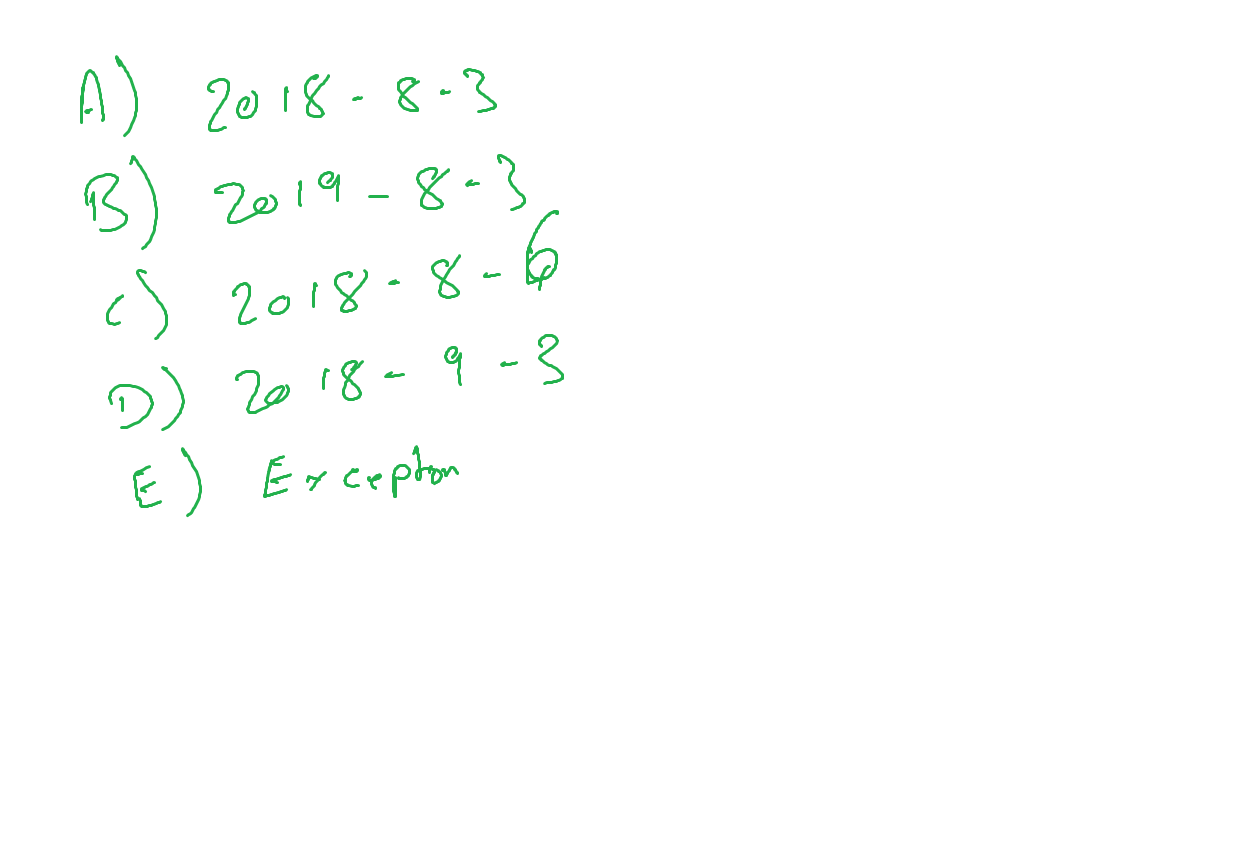 A) 2018 - 8 - 3
B) 2019 - 8 - 3
C) 2018 - 8 - 6
D) 2018 - 9 - 3
E) Exception